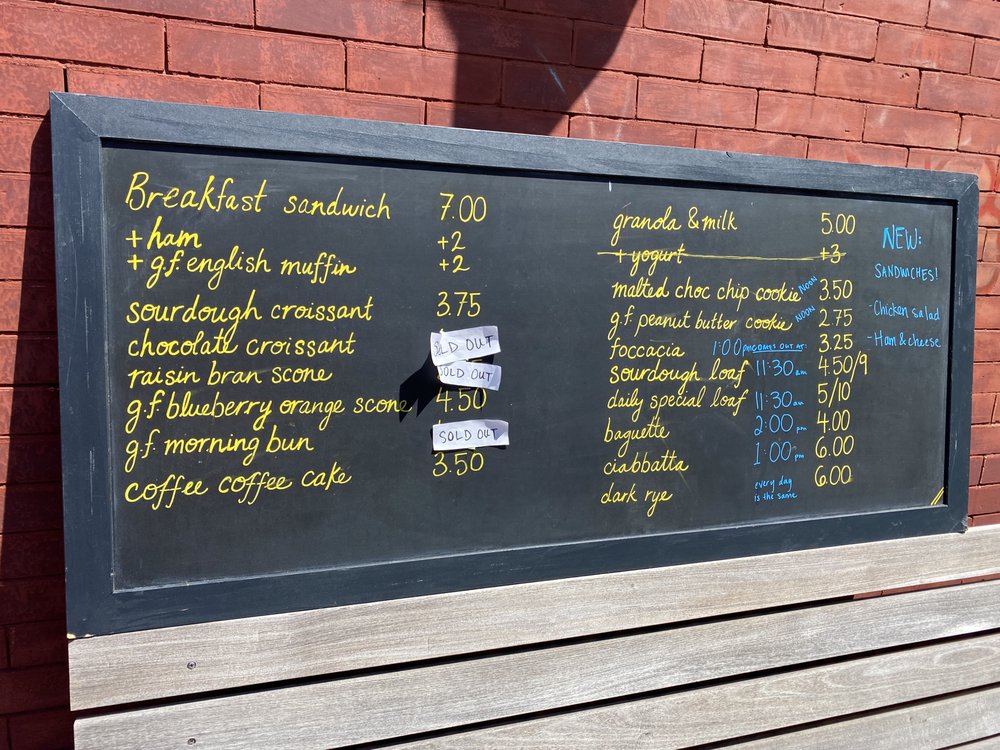 Breakfast sandwich 7.00
+ ham +2
+ g.f. english muffin +2
sourdough croissant 3.75
chocolate croissant SOLD OUT
raisin bran scone SOLD OUT
g.f blueberry orange scone 4.50
g.f. morning bun SOLD OUT
coffee coffee cake 3.50
granola & milk 5.00
+ yogurt +3
malted choc chip cookie NOON 3.50
g.f peanut butter cookie NOON 2.75
foccacia 1:00 pm COMES OUT AT: 3.25
sourdough loaf 11:30 am 4.50/9
daily special loaf 11:30 am 5/10
baguette 2:00 pm 4.00
ciabbatta 1:00 pm 6.00
dark rye every day is the same 6.00
NEW:
SANDWICHES!
- Chicken salad
- Ham & cheese